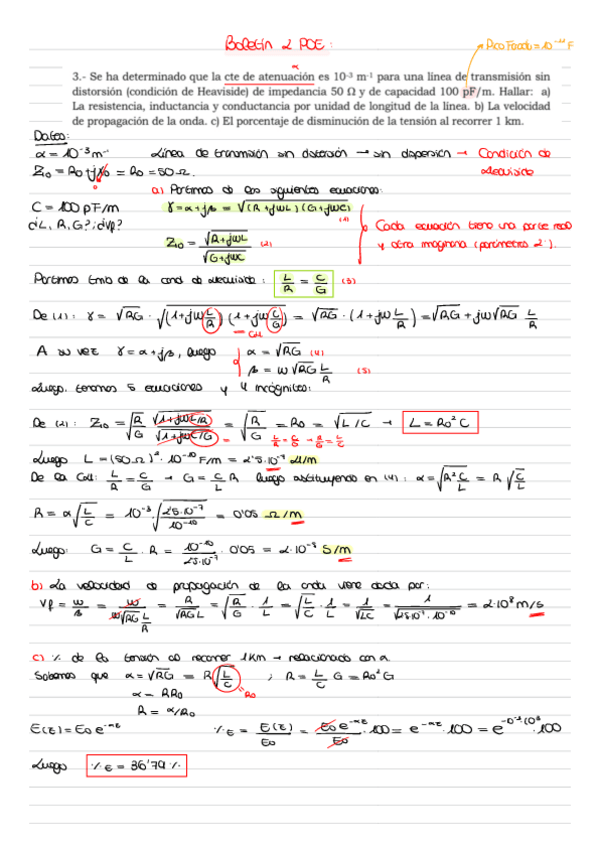 BOLETÍN 2 POE:
Pico Faradio = 10⁻¹² F
α
3.- Se ha determinado que la cte de atenuación es 10⁻³ m⁻¹ para una línea de transmisión sin
distorsión (condición de Heaviside) de impedancia 50 Ω y de capacidad 100 pF/m. Hallar: a)
La resistencia, inductancia y conductancia por unidad de longitud de la línea. b) La velocidad
de propagación de la onda. c) El porcentaje de disminución de la tensión al recorrer 1 km.
Datos:
α = 10⁻³ m⁻ Línea de transmisión sin distorsión → sin dispersión → Condición de Heaviside
Z₁₀ = R₀ + jX₀ = R₀ = 50Ω.
a) Partimos de las siguientes ecuaciones:
C = 100 pF/m γ = α + jβ = √(R + jωL)(G + jωC) (1)
¿L, R, G?; ¿vp?
Z₁₀ = √R+jωL / √G+jωC (2)
Cada ecuación tiene una parte real
y otra imaginaria (parámetros 2).
Partimos tmb de la cond de Heaviside: L/R = C/G (3)
De (1): γ = √RG · √(1+jω L/R)(1+jω C/G) = √RG · (1+jω L/R) = √RG + jω√RG L/R
A su vez γ = α + jβ, luego α = √RG (4)
β = ω√RG L/R (5)
Luego, tenemos 5 ecuaciones y 4 incógnitas:
De (2): Z₁₀ = √R/G √1+jωL/R / √1+jωC/G = √R/G = R₀ = √L/C → L = R₀²C
L/R = C/G → R/G = L/C
Luego L = (50Ω)² · 10⁻¹⁰ F/m = 2'5·10⁻⁷ H/m
De la CH: L/R = C/G → G = C/L R luego sustituyendo en (4): α = √R² C/L = R √C/L
R = α√L/C = 10⁻³ √2'5·10⁻⁷ / 10⁻¹⁰ = 0'05 Ω/m
Luego: G = C/L · R = 10⁻¹⁰ / 2'5·10⁻⁷ · 0'05 = 2·10⁻⁵ S/m
b) La velocidad de propagación de la onda viene dada por:
Vp = ω/β = ω / ω√RG L/R = R / √RG L = √R/G · 1/L = √L/C · 1/L = 1/√LC = 1 / √2'5·10⁻⁷·10⁻¹⁰ = 2·10⁸ m/s
c) % de la tensión al recorrer 1km → relacionado con α
Sabemos que α = √RG = R√L/C → R₀ ; R = L/C G = R₀²G
α = RR₀
R = α/R₀
E(z) = E₀ e^-αz %E = E(z)/E₀ = E₀ e^-αz / E₀ · 100 = e^-αz · 100 = e^-10⁻³·10³ · 100
Luego %E = 36'79 %